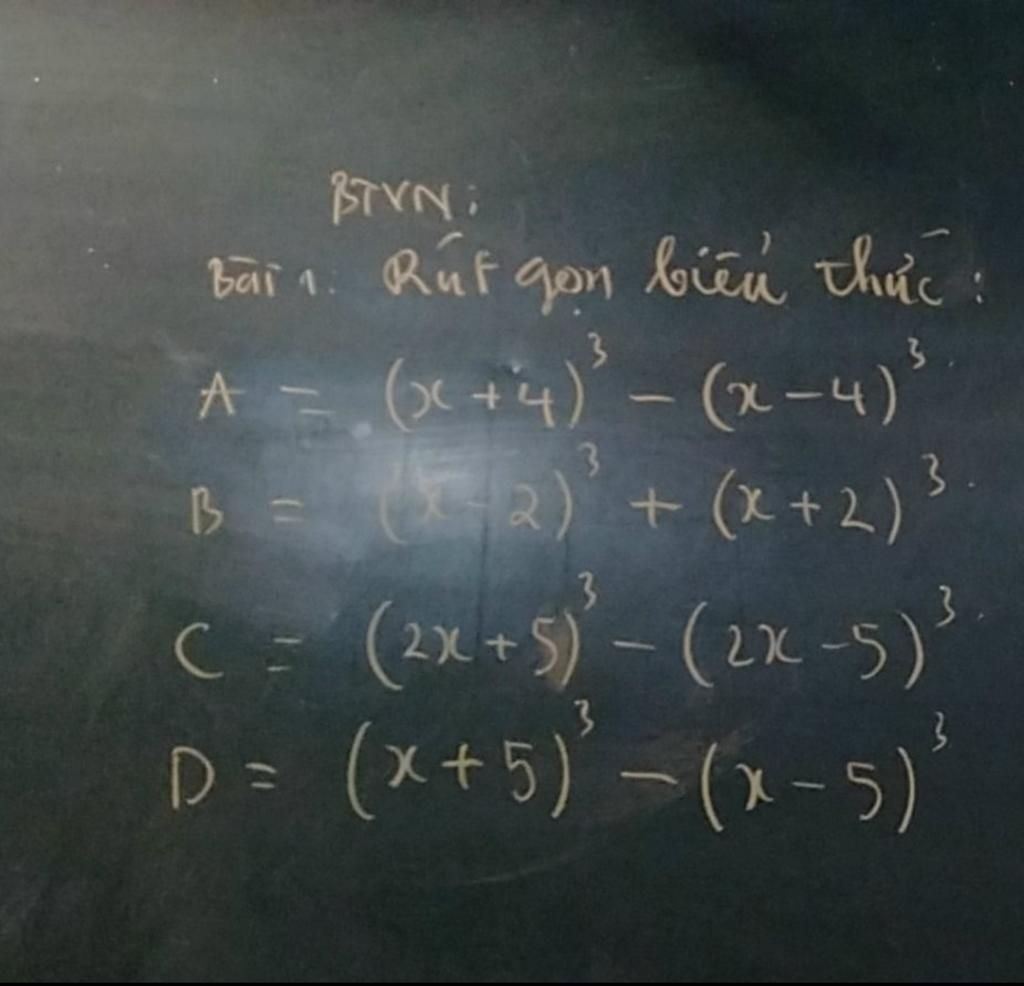 BTVN:
Bài 1: Rút gọn biểu thức:
A = (x+4)³ - (x-4)³.
B = (x-2)³ + (x+2)³.
C = (2x+5)³ - (2x-5)³.
D = (x+5)³ - (x-5)³